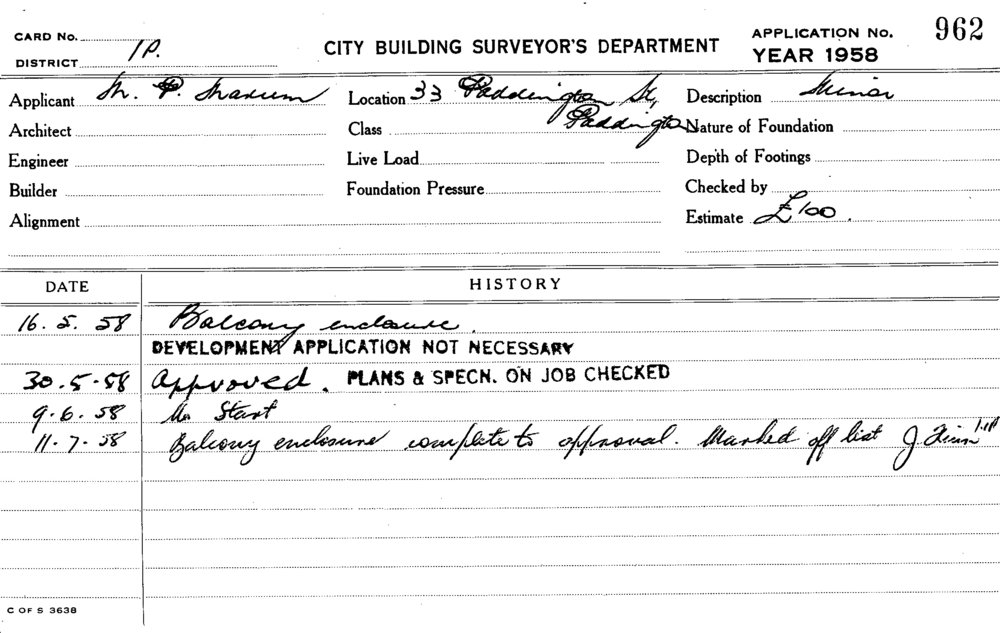 CARD No.
DISTRICT 1P.
CITY BUILDING SURVEYOR'S DEPARTMENT
APPLICATION No. 962
YEAR 1958
Applicant M. P.
Location 33 Paddington St,
Paddington
Description Minor
Architect
Class
Nature of Foundation
Engineer
Live Load
Depth of Footings
Builder
Foundation Pressure
Checked by
Alignment
Estimate £100.
DATE HISTORY
16. 5. 58 Balcony enclosure.
DEVELOPMENT APPLICATION NOT NECESSARY
30.5.58 Approved. PLANS & SPECN. ON JOB CHECKED
9.6.58 No Start
11.7.58 Balcony enclosure complete to approval. Marked off list J
C OF S 3638